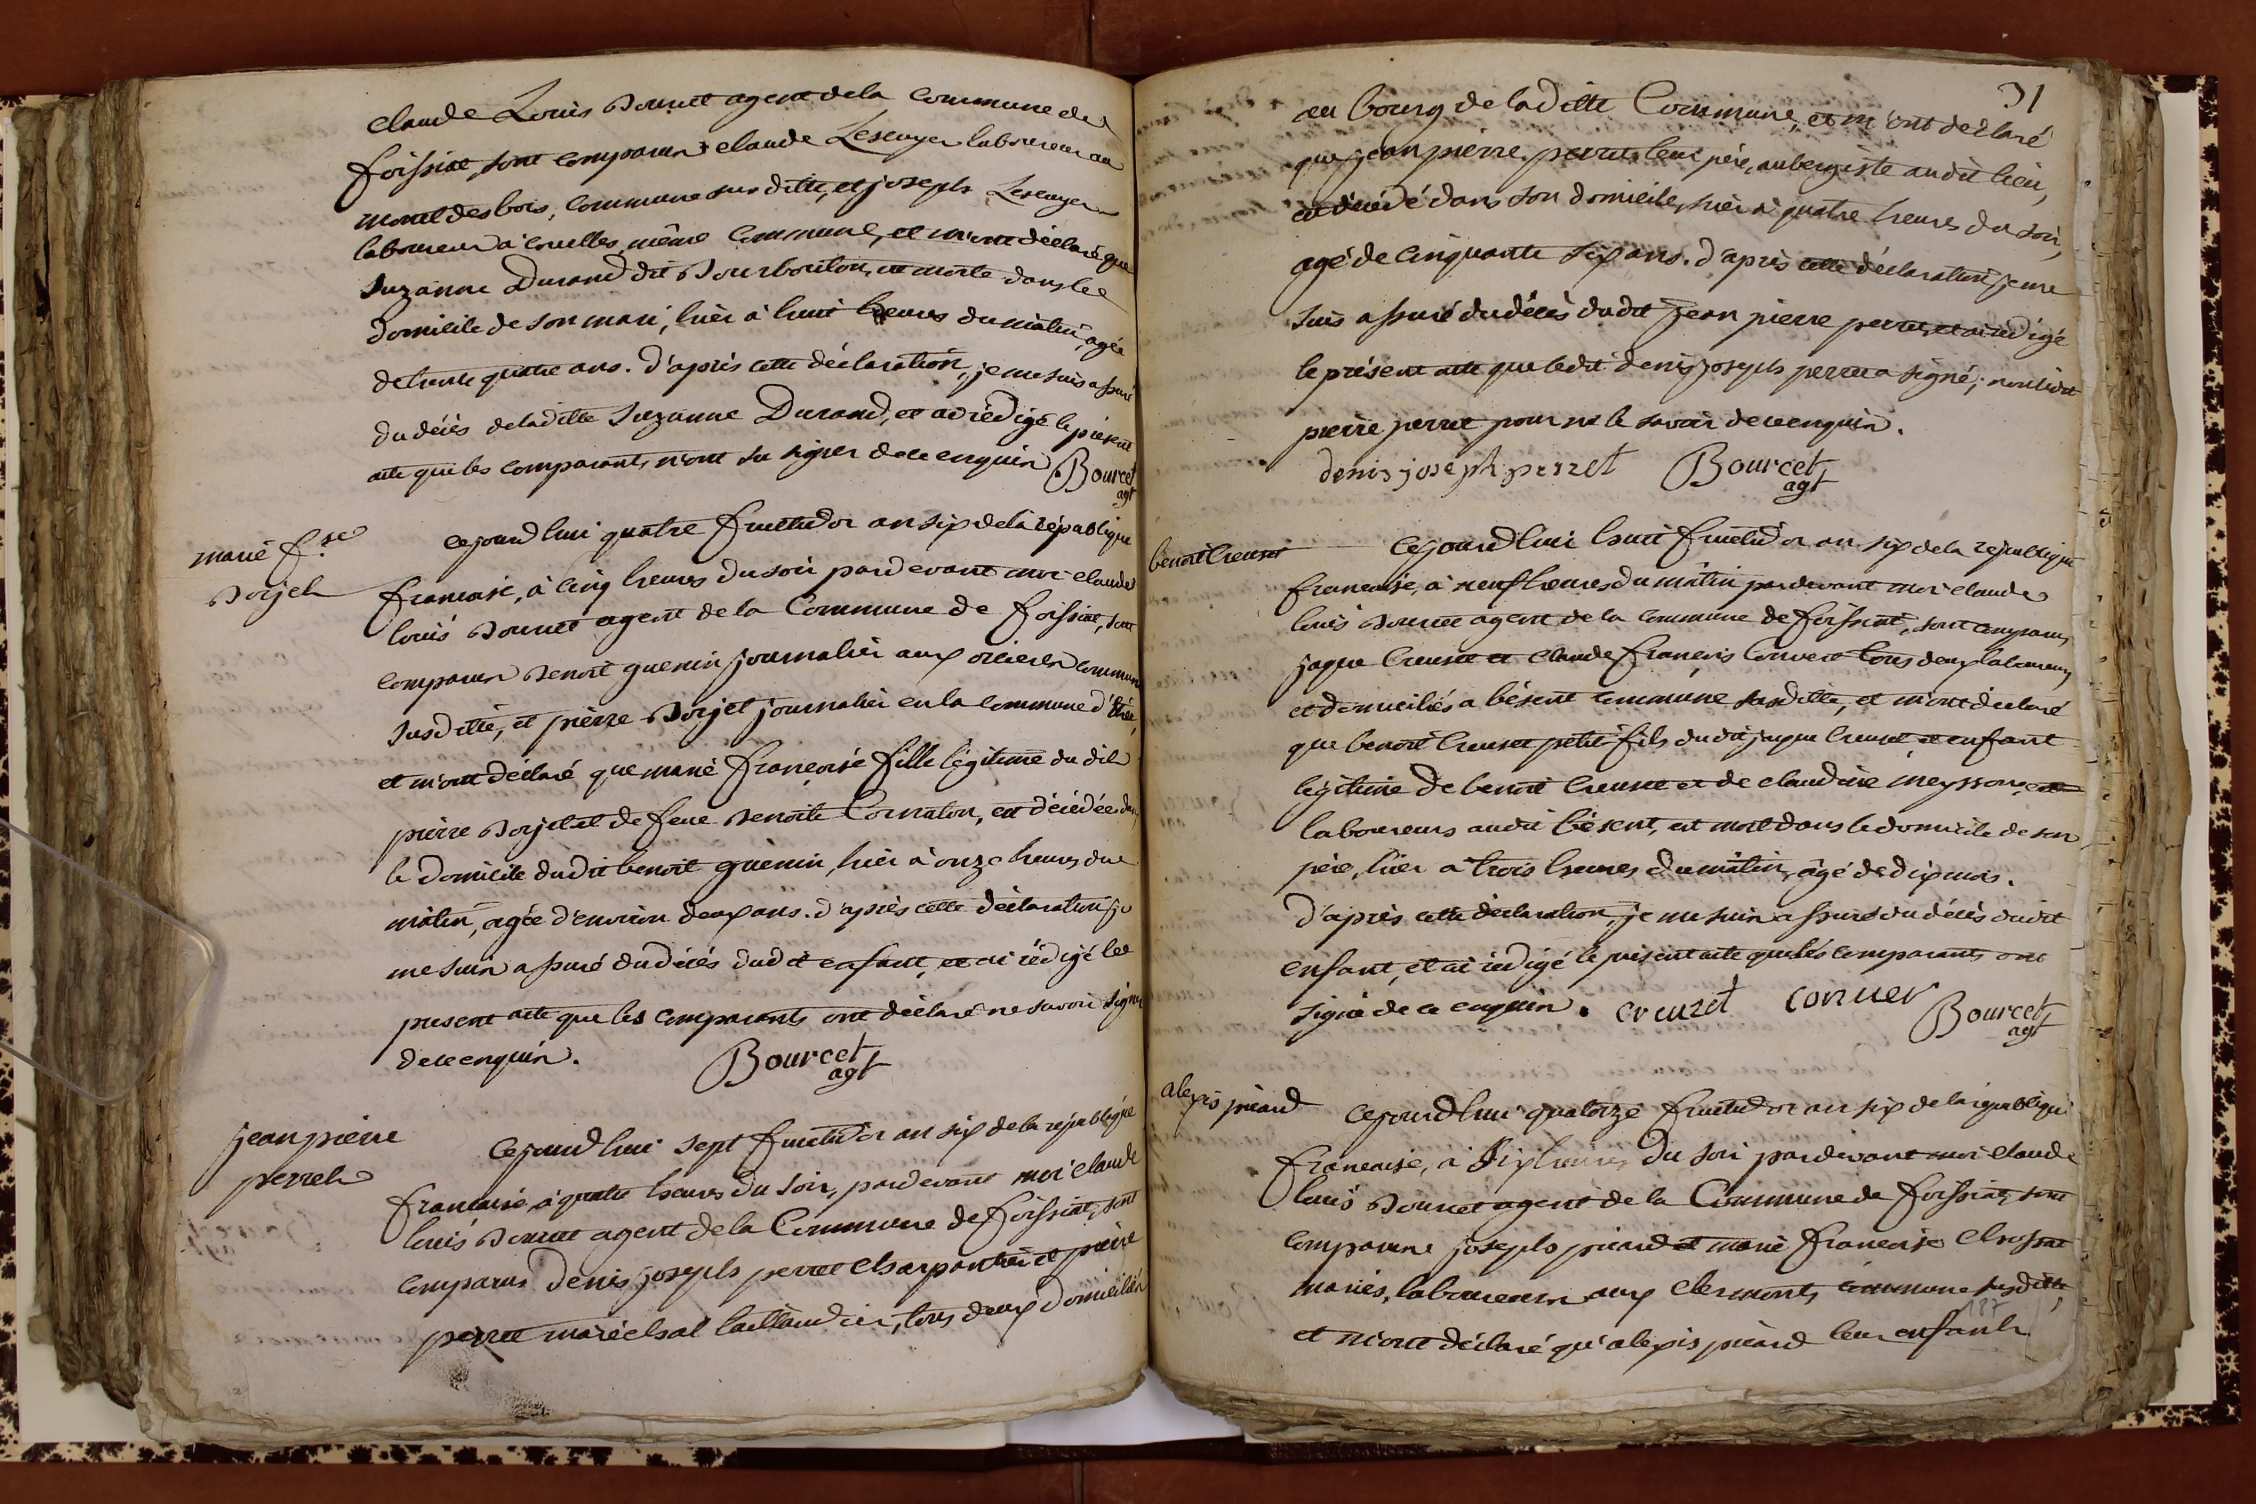 claude Louis Bourcet agent de la commune de
foissiat, sont comparus claude Lescuyer laboureur au
mont des bois, commune susditte, et joseph Lescuyer
laboureur à cruelles même commune, et m'ont déclaré que
Suzanne Durand dit Bourbouton est morte dans le
domicile de son mari, hièr à huit heures du matin, agée
de trente quatre ans. d'après cette déclaration, je me suis assuré
du décès de laditte Suzanne Durand, et ai rédigé le présent
acte que les comparants n'ont su signer de ce enquin Bourcet
agt
marie f.se
Borjet
cejourd'hui quatre fructidor an six de la république
française, à cinq heures du soir pardevant moi claude
louis Bourcet agent de la Commune de foissiat, sont
comparus Benoit guenin journalier aux commune
susditte, et pièrre Borjet journalier en la commune
et m'ont déclaré que marie françoise fille légitime du dit
pièrre Borjet et de feue Benoite Cornaton, est décédée dans
le domicile dudit benoit guenin, hièr à onze heures du
matin, agée d'environ deux ans. d'après cette déclaration je
me suis assuré du décès dudit enfant, et ai rédigé le
present acte que les comparants ont déclaré ne savoir signer
de ce enquin. Bourcet
agt
jean pierre
perret
Cejourd'hui sept fructidor an six de la république
française, à quatre heures du soir, pardevant moi claude
louis Bourcet agent de la Commune de foissiat, sont
comparus Denis joseph perret charpentier et pièrre
perret maréchal taillandier, tous deux domiciliés
31
au bourg de laditte Commune, et m'ont déclaré
que jean pierre perret leur père, aubergiste audit lieu,
est décédé dans son domicile, hièr à quatre heures du soir,
agé de cinquante six ans. d'après cette déclaration je me
suis assuré du décès dudit jean pierre perret, et ai rédigé
le présent acte que ledit denis joseph perret a signé, non ledit
pierre perret pour ne le savoir de ce enquin.
denis joseph perret Bourcet
agt
benoit creuset
Cejourd'hui huit fructidor an six de la république
française, à neuf heures du matin pardevant moi claude
louis Bourcet agent de la commune de foissiat, sont comparus,
jaque creuset et claude françois Convert tous deux laboureurs,
et domiciliés a bésent commune susditte, et m'ont déclaré
que benoit creuset petit fils dudit jaque creuset et enfant
légitime de benoit creuset et de claudine meysson
laboureurs audit bésent, est mort dans le domicile de son
père, hièr a trois heures du matin, agé de dix mois.
d'après cette déclaration, je me suis assuré du décès dudit
enfant, et ai rédigé le présent acte que lés comparants ont
signé de ce enquin. creuzet conver Bourcet
agt
alexis picard
cejourd'hui quatorze fructidor an six de la république
française, à six heures du soir pardevant moi claude
louis Bourcet agent de la Commune de foissiat, sont
comparus joseph picard et marie françoise chossat
mariés, laboureurs aux clermonts, commune susditte,
et m'ont déclaré qu'alexis picard leur enfant
187